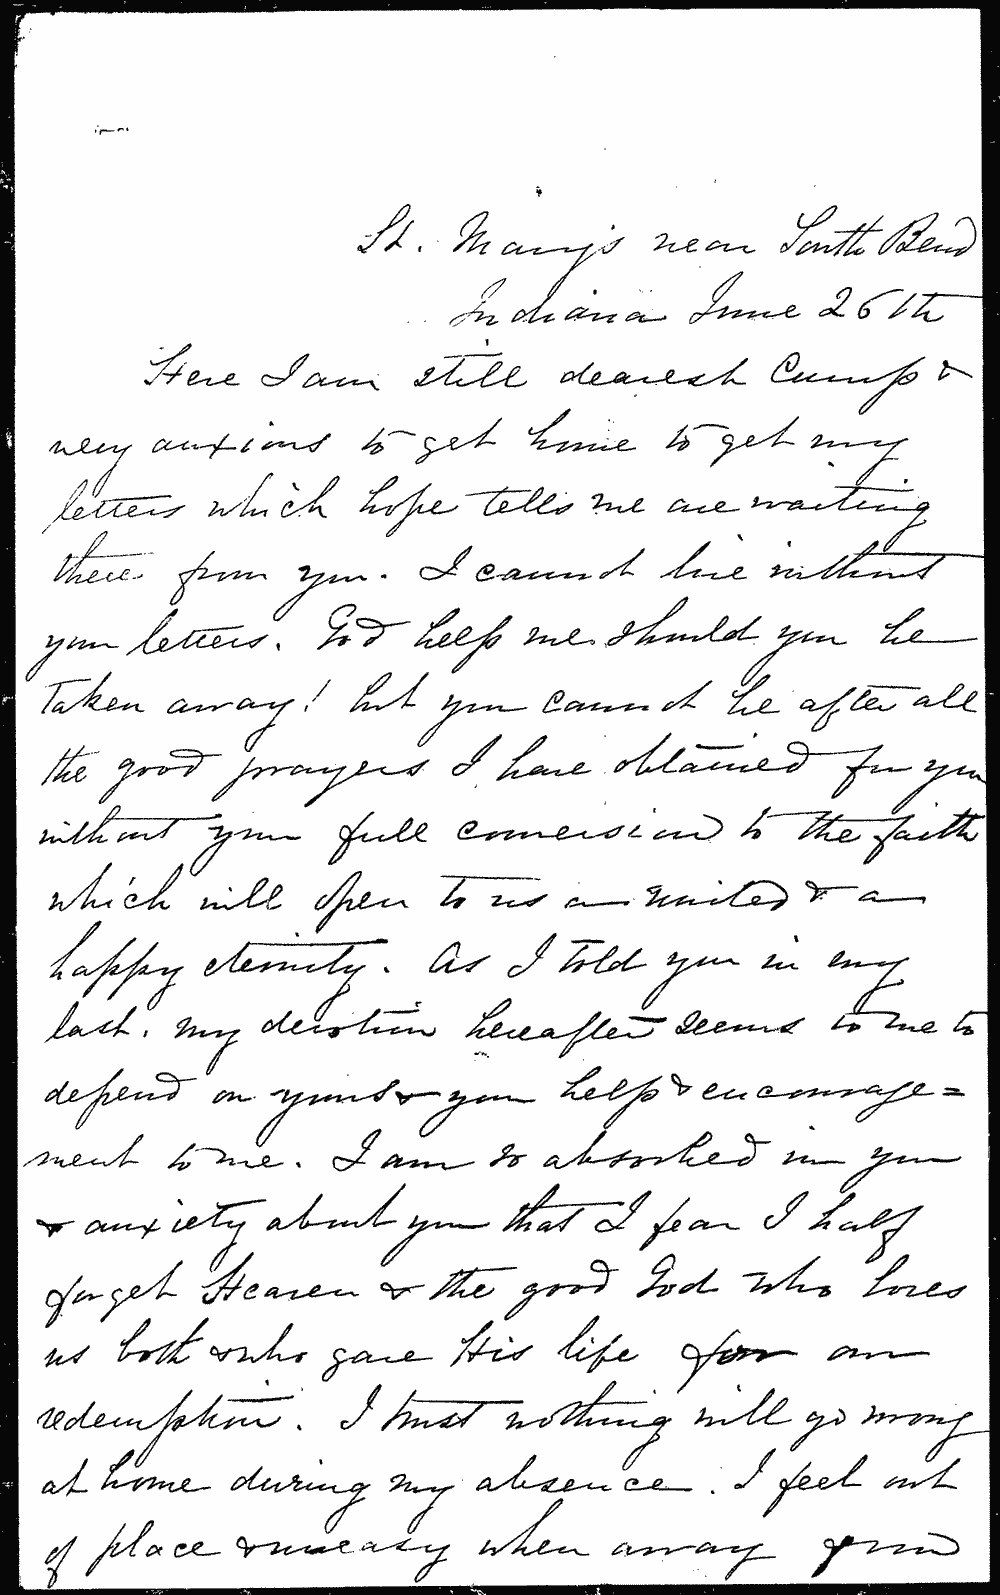 St. Mary's near South Bend
Indiana June 26th
Here I am still dearest Cump &
very anxious to get home to get my
letters which hope tells me are waiting
there from you. I cannot live without
your letters. God help me should you be
taken away! but you cannot be after all
the good prayers I have obtained for you
without your full conversion to the faith
which will open to us a united & a
happy eternity. As I told you in my
last, my devotion hereafter seems to me to
depend on yours & your help & encourage=
ment to me. I am so absorbed in you
& anxiety about you that I fear I half
forget Heaven & the good God who loves
us both & who gave His life for our
redemption. I trust nothing will go wrong
at home during my absence. I feel out
of place & uneasy when away from